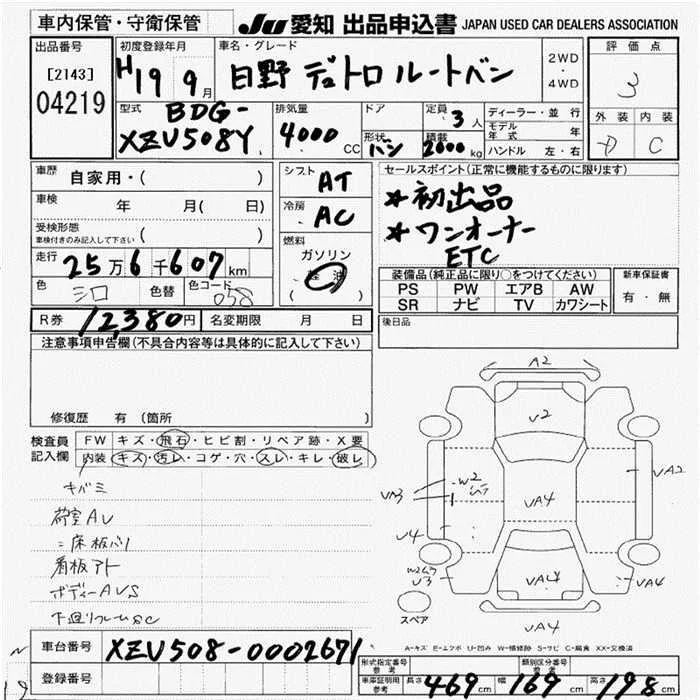 車内保管・守衛保管
JU 愛知 出品申込書 JAPAN USED CAR DEALERS ASSOCIATION
出品番号
[2143]
04219
初度登録年月
H19 9月
車名・グレード
日野 デュトロ ルートバン
2WD
・
4WD
評価点
3
型式
BDG-
XZU508Y
排気量
4000 CC
ドア
形状
バン
定員
3人
積載
2000kg
ディーラー・並行
モデル年式 年
ハンドル 左・右
外装 内装
D C
車歴
自家用・( )
車検
年 月( 日)
受検形態
車検付きのみ記入して下さい ( )
走行
25万6千607km
色
シロ
色替
色コード
058
シフト
AT
冷房
AC
燃料
ガソリン
軽油
( )
セールスポイント(正常に機能するものに限ります)
*初出品
*ワンオーナー
ETC
装備品(純正品に限り○をつけてください)
PS PW エアB AW
SR ナビ TV カワシート
新車保証書
有・無
後日品
R券 12,380円
名変期限 月 日
注意事項申告欄(不具合内容等は具体的に記入して下さい)
修復歴 有(箇所 )
検査員記入欄
FW キズ・飛石・ヒビ割・リペア跡・X要
内装 キズ・汚レ・コゲ・穴・スレ・キレ・破レ
キバミ
荷室AU
看板アト
ボディーAUS
A2
V2
UA3
W2
UA4
UA2
U4
U3
UA4
UA4
UA4
スペア
A-キズ E-エクボ U-凹み W-補修跡 S-サビ C-腐食 XX-交換済
車台番号
XZU508-0002671
登録番号
形式指定番号
参考
類別区分番号
参考
車庫証明用
参考
長さ 469cm
幅 169cm
高さ 198cm